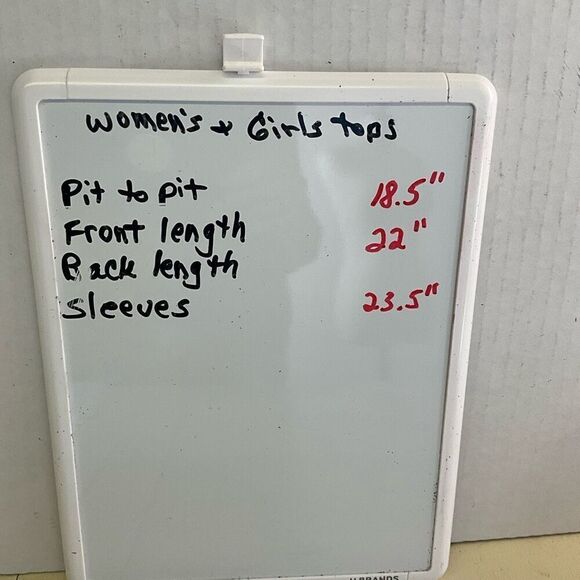 Women's + Girls tops
Pit to pit 18.5"
Front length 22"
Back length
Sleeves 23.5"
U BRANDS